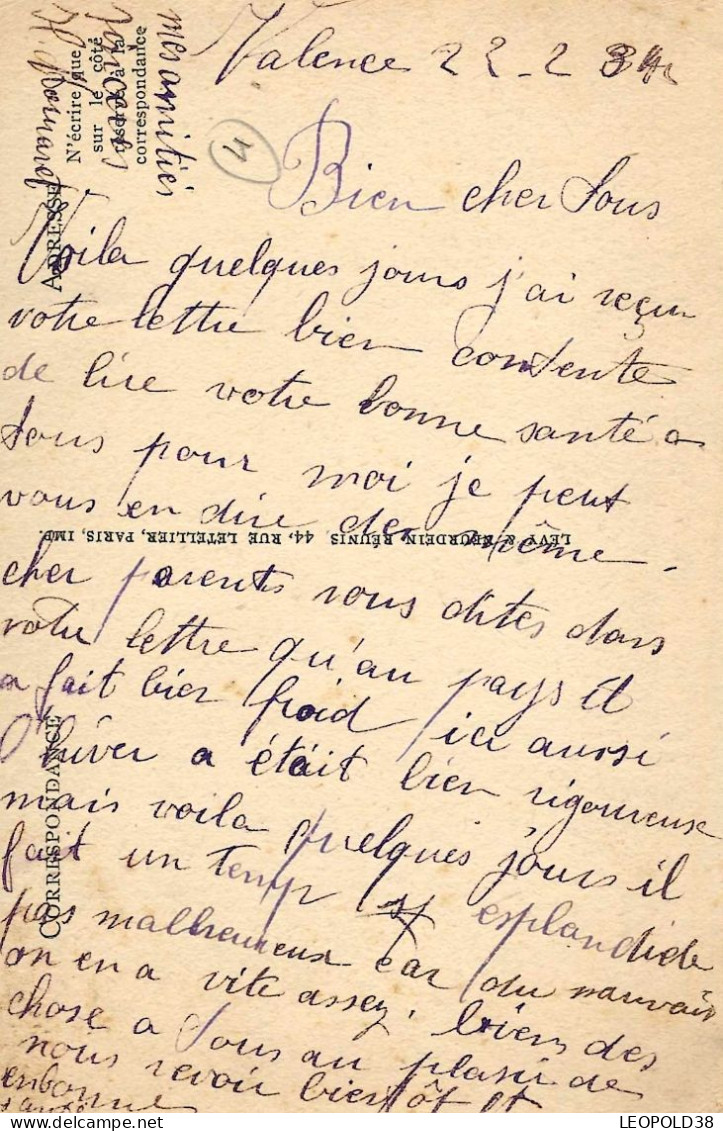 Valence 22-2 34
4
Bien cher tous
Voila quelques jours j'ai reçu
votre lettre bien contente
de lire votre bonne santé a
tous pour moi je peut
vous en dire de même.
cher parents vous dites dans
votre lettre qu'au pays il
a fait bien froid ici aussi
l'hiver a était bien rigoureuse
mais voila quelques jours il
fait un temp esplandide
pas malheureux car du mauvais
on en a vite assez. biens des
chose a tous au plasir de
nous revoir bientôt et
en bonne
santé
mes amitiés
N'écrire que
sur le côté
réservé à la
correspondance
ADRESSE
CORRESPONDANCE
LÉVY & NEURDEIN RÉUNIS, 44, RUE LETELLIER, PARIS, IMP.
LEOPOLD38